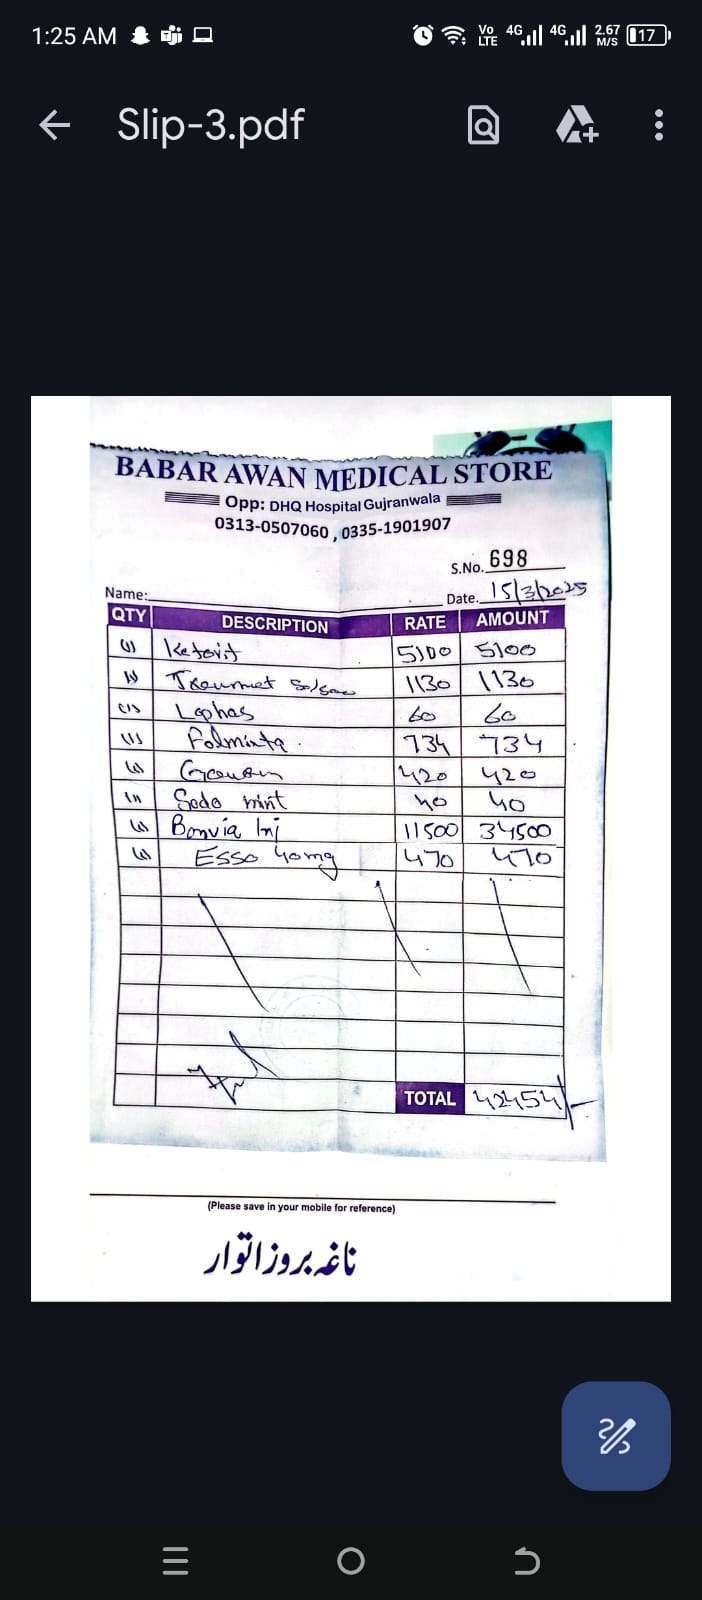 1:25 AM Vo LTE 4G 4G 2.67 M/S 17
Slip-3.pdf
BABAR AWAN MEDICAL STORE
Opp: DHQ Hospital Gujranwala
0313-0507060 , 0335-1901907
S.No. 698
Name: Date. 15/3/2025
QTY DESCRIPTION RATE AMOUNT
(1) Ketovit 5100 5100
1130 1130
(1) Lophas 60 60
(1) Folminta 734 734
420 420
Soda mint 40 40
Bonvia Inj 11500 34500
Esso 40mg 470 470
TOTAL 42454/-
(Please save in your mobile for reference)
ناغہ بروز اتوار